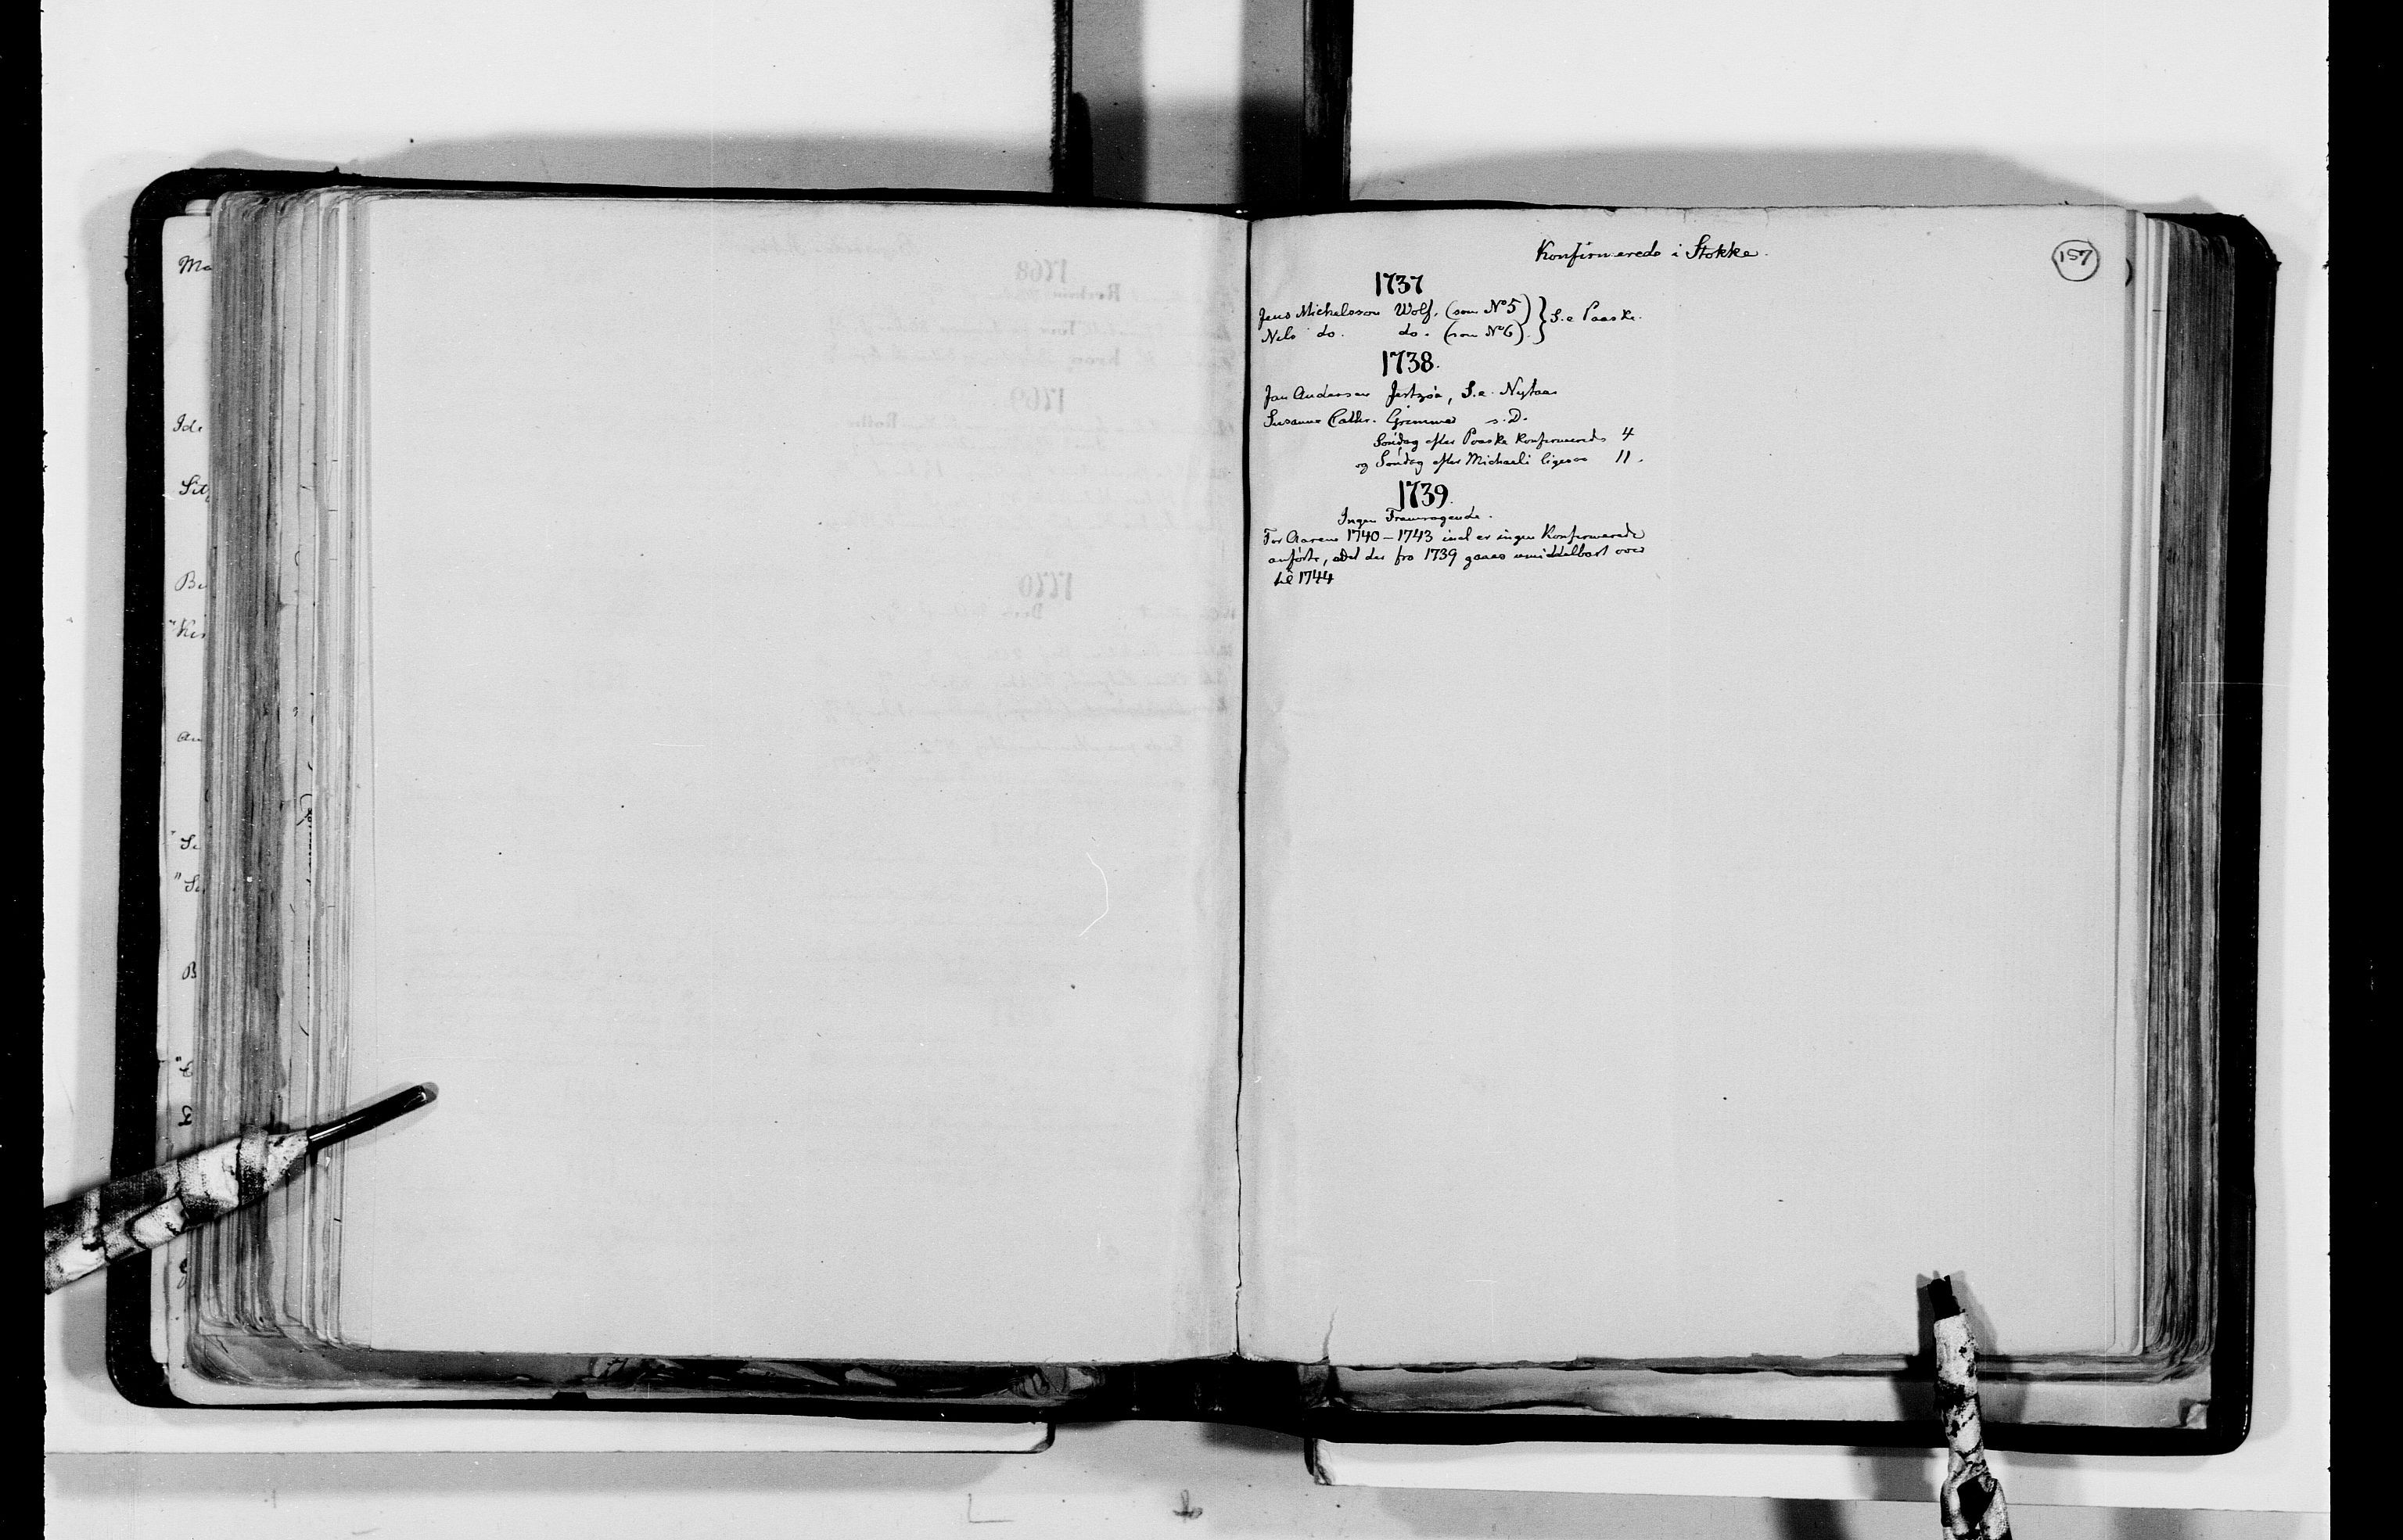 Konfirmerede i Stokke.
157
1737
Jens Michelsson Wolf. (som No 5) } S. e. Paaske.
Nels do. do. (som No 6).
1738.
Jan Andersen S. e. Nytaar
Susanne Cathr. Grimmer s. D.
Søndag efter Paaske Konfirmerede 4
og Søndag efter Michaeli ligesaa 11.
1739.
Ingen Fremragende.
For Aarene 1740 – 1743 incl er ingen Konfirmerede
anførte, idet der fra 1739 gaaes umiddelbart over
til 1744